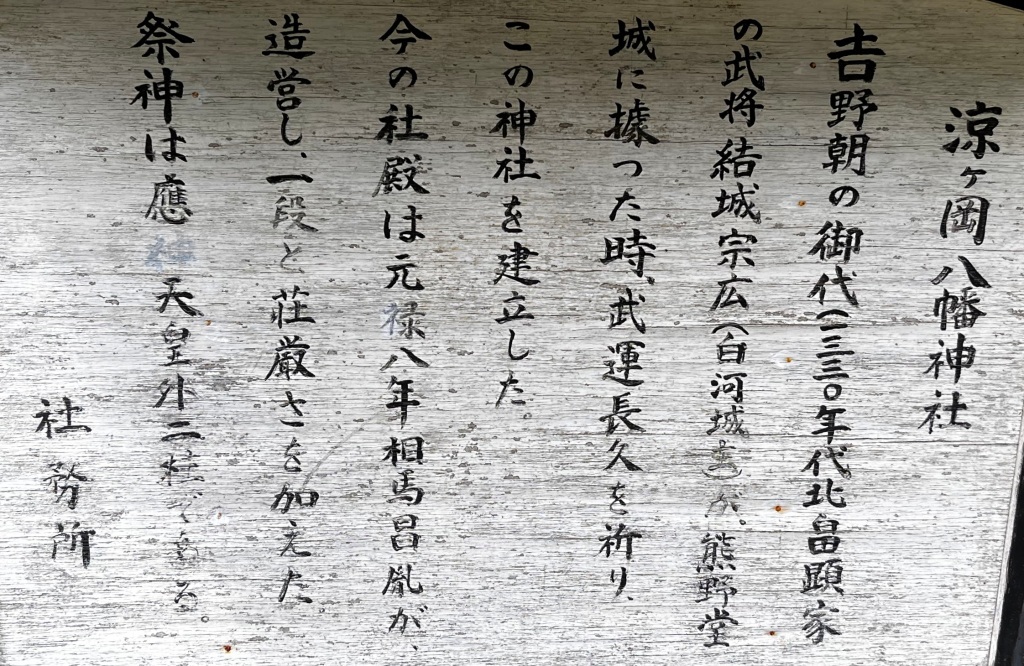 涼ヶ岡八幡神社
吉野朝の御代(一三三〇年代北畠顕家
の武将結城宗広(白河城主)が、熊野堂
城に據った時、武運長久を祈り、
この神社を建立した。
今の社殿は元禄八年相馬昌胤が、
造営し、一段と荘厳さを加えた。
祭神は應神天皇外二柱である。
社務所